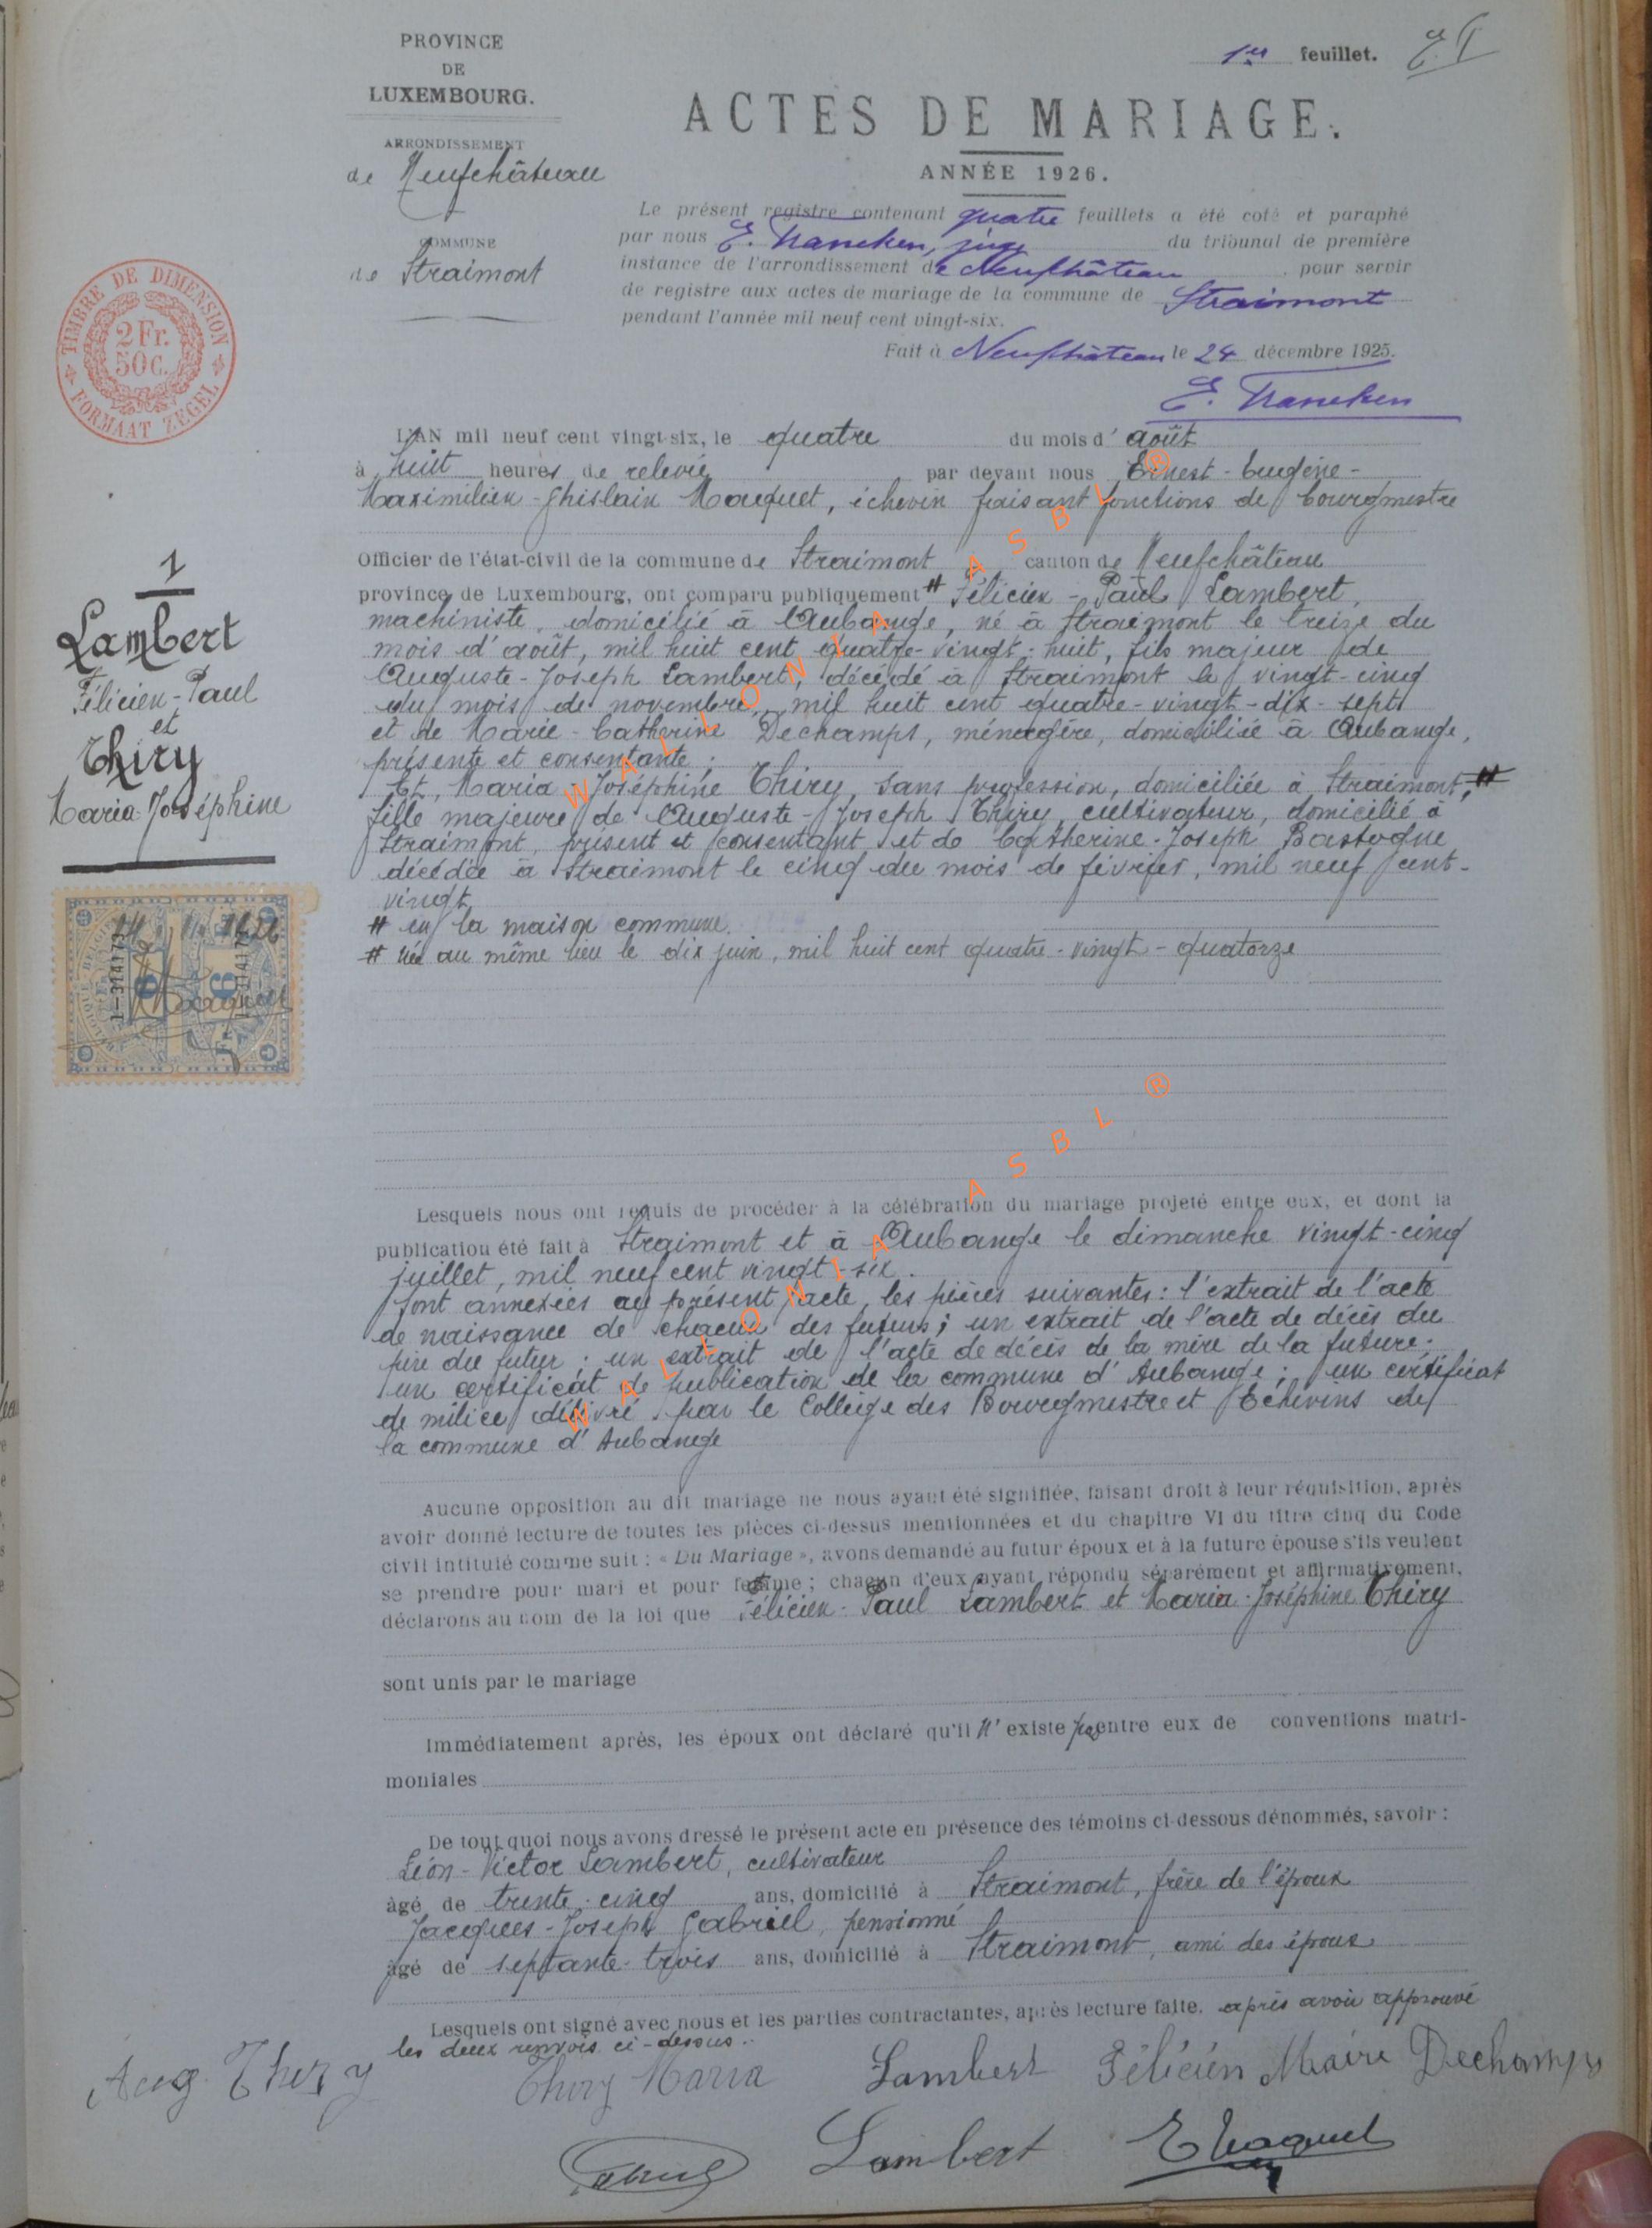 PROVINCE
DE
LUXEMBOURG.
ARRONDISSEMENT
de Neufchâteau
COMMUNE
de Straimont
1er feuillet.
ACTES DE MARIAGE.
ANNÉE 1926.
Le présent registre contenant quatre feuillets a été coté et paraphé
par nous E. juge du tribunal de première
instance de l'arrondissement de Neufchâteau, pour servir
de registre aux actes de mariage de la commune de Straimont
pendant l'année mil neuf cent vingt-six.
Fait à Neufchâteau le 24 décembre 1925.
TIMBRE DE DIMENSION
2 Fr.
50 C.
FORMAAT ZEGEL
1
Lambert
Félicien-Paul
et
Thiry
Maria-Joséphine
L'AN mil neuf cent vingt-six, le quatre du mois d'août
à huit heures de relevée par devant nous Ernest-Eugène-
Maximilien-Ghislain Maquet, échevin faisant fonctions de bourgmestre
Officier de l'état-civil de la commune de Straimont, canton de Neufchâteau
province de Luxembourg, ont comparu publiquement # Félicien-Paul Lambert,
machiniste, domicilié à Aubange, né à Straimont le treize du
mois d'août, mil huit cent quatre-vingt-huit, fils majeur de
Auguste-Joseph Lambert, décédé à Straimont le vingt-cinq
du mois de novembre, mil huit cent quatre-vingt-dix-sept
et de Marie-Catherine Dechamps, ménagère, domiciliée à Aubange,
présente et consentante;
Et, Maria-Joséphine Thiry, sans profession, domiciliée à Straimont, #
fille majeure de Auguste-Joseph Thiry, cultivateur, domicilié à
Straimont, présent et consentant et de Catherine-Joseph Bastogne
décédée à Straimont le cinq du mois de février, mil neuf cent-
vingt
# en la maison commune.
# née au même lieu le dix juin, mil huit cent quatre-vingt-quatorze
Lesquels nous ont requis de procéder à la célébration du mariage projeté entre eux, et dont la
publication été fait à Straimont et à Aubange le dimanche vingt-cinq
juillet, mil neuf cent vingt-six.
Sont annexées au présent acte, les pièces suivantes: l'extrait de l'acte
de naissance de chacun des futurs; un extrait de l'acte de décès du
père du futur; un extrait de l'acte de décès de la mère de la future;
un certificat de publication de la commune d'Aubange; un certificat
de milice délivré par le Collège des Bourgmestre et Echevins de
la commune d'Aubange
Aucune opposition au dit mariage ne nous ayant été signifiée, faisant droit à leur réquisition, après
avoir donné lecture de toutes les pièces ci-dessus mentionnées et du chapitre VI du titre cinq du Code
civil intitulé comme suit: « Du Mariage », avons demandé au futur époux et à la future épouse s'ils veulent
se prendre pour mari et pour femme; chacun d'eux ayant répondu séparément et affirmativement,
déclarons au nom de la loi que Félicien-Paul Lambert et Maria-Joséphine Thiry
sont unis par le mariage
Immédiatement après, les époux ont déclaré qu'il n'existe pas entre eux de conventions matri-
moniales
De tout quoi nous avons dressé le présent acte en présence des témoins ci-dessous dénommés, savoir:
Léon-Victor Lambert, cultivateur
âgé de trente-cinq ans, domicilié à Straimont, frère de l'époux
Jacques-Joseph Gabriel, pensionné
âgé de septante-trois ans, domicilié à Straimont, ami des époux
Lesquels ont signé avec nous et les parties contractantes, après lecture faite. après avoir approuvé
les deux renvois ci-dessus.
Aug Thiry Thiry Maria Lambert Félicien Marie Dechamps
Lambert E Maquet
WALLONIA ASBL ®
WALLONIA ASBL ®